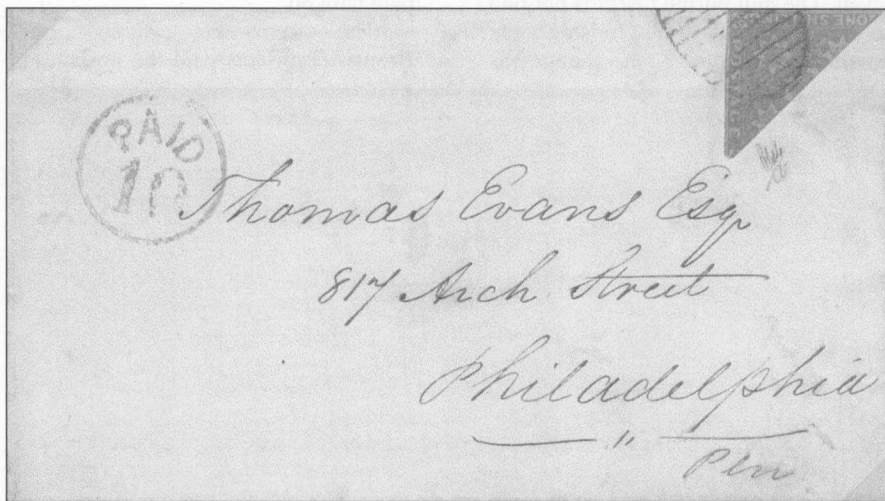 ONE SH
POSTAGE
PAID
10
Thomas Evans Esq
817 Arch Street
Philadelphia
"
Pen